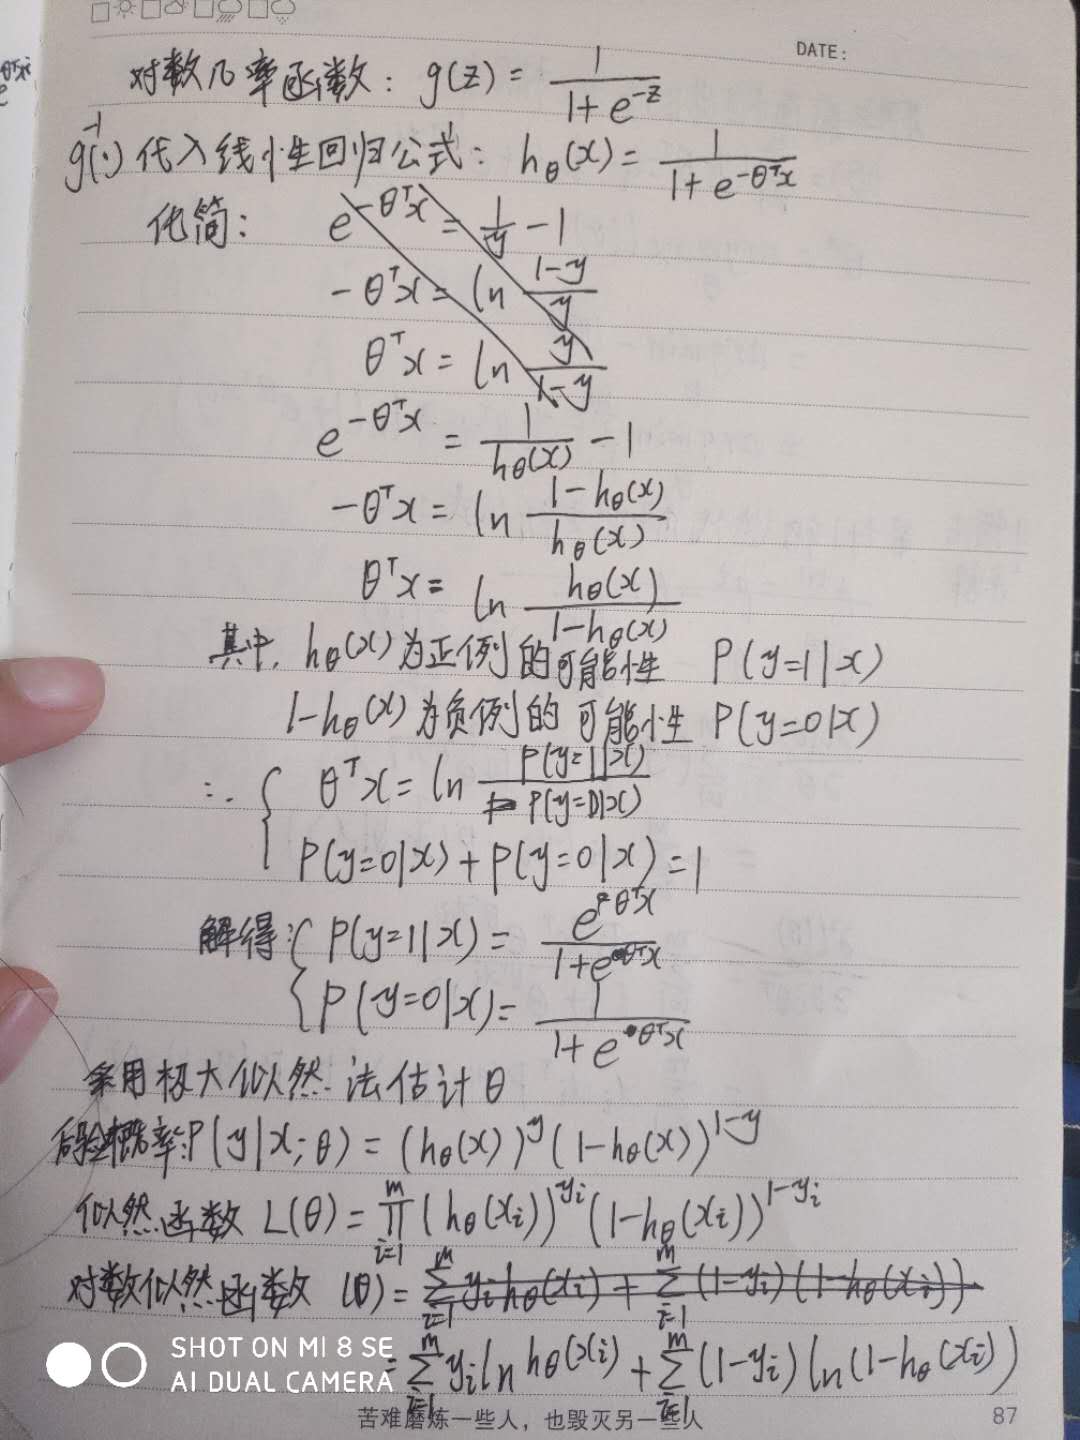 DATE:
对数几率函数: g(z) = 1/(1+e^{-z})
g^{-1}(·)代入线性回归公式: h_θ(x) = 1/(1+e^{-θ^T x})
化简: e^{-θ^T x} = 1/y - 1
-θ^T x = ln (1-y)/y
θ^T x = ln y/(1-y)
e^{-θ^T x} = 1/h_θ(x) - 1
-θ^T x = ln (1-h_θ(x))/h_θ(x)
θ^T x = ln h_θ(x)/(1-h_θ(x))
其中, h_θ(x)为正例的可能性 P(y=1|x)
1-h_θ(x)为负例的可能性 P(y=0|x)
∴ { θ^T x = ln P(y=1|x)/P(y=0|x)
P(y=0|x) + P(y=0|x) = 1
解得: { P(y=1|x) = e^{θ^T x}/(1+e^{θ^T x})
P(y=0|x) = 1/(1+e^{θ^T x})
采用极大似然法估计θ
后验概率: P(y|x;θ) = (h_θ(x))^y (1-h_θ(x))^{1-y}
似然函数 L(θ) = ∏_{i=1}^m (h_θ(x_i))^{y_i} (1-h_θ(x_i))^{1-y_i}
对数似然函数 l(θ) = ∑_{i=1}^m y_i h_θ(x_i) + ∑_{i=1}^m (1-y_i)(1-h_θ(x_i))
= ∑_{i=1}^m y_i ln h_θ(x_i) + ∑_{i=1}^m (1-y_i) ln(1-h_θ(x_i))
SHOT ON MI 8 SE
AI DUAL CAMERA
苦难磨炼一些人，也毁灭另一些人
87